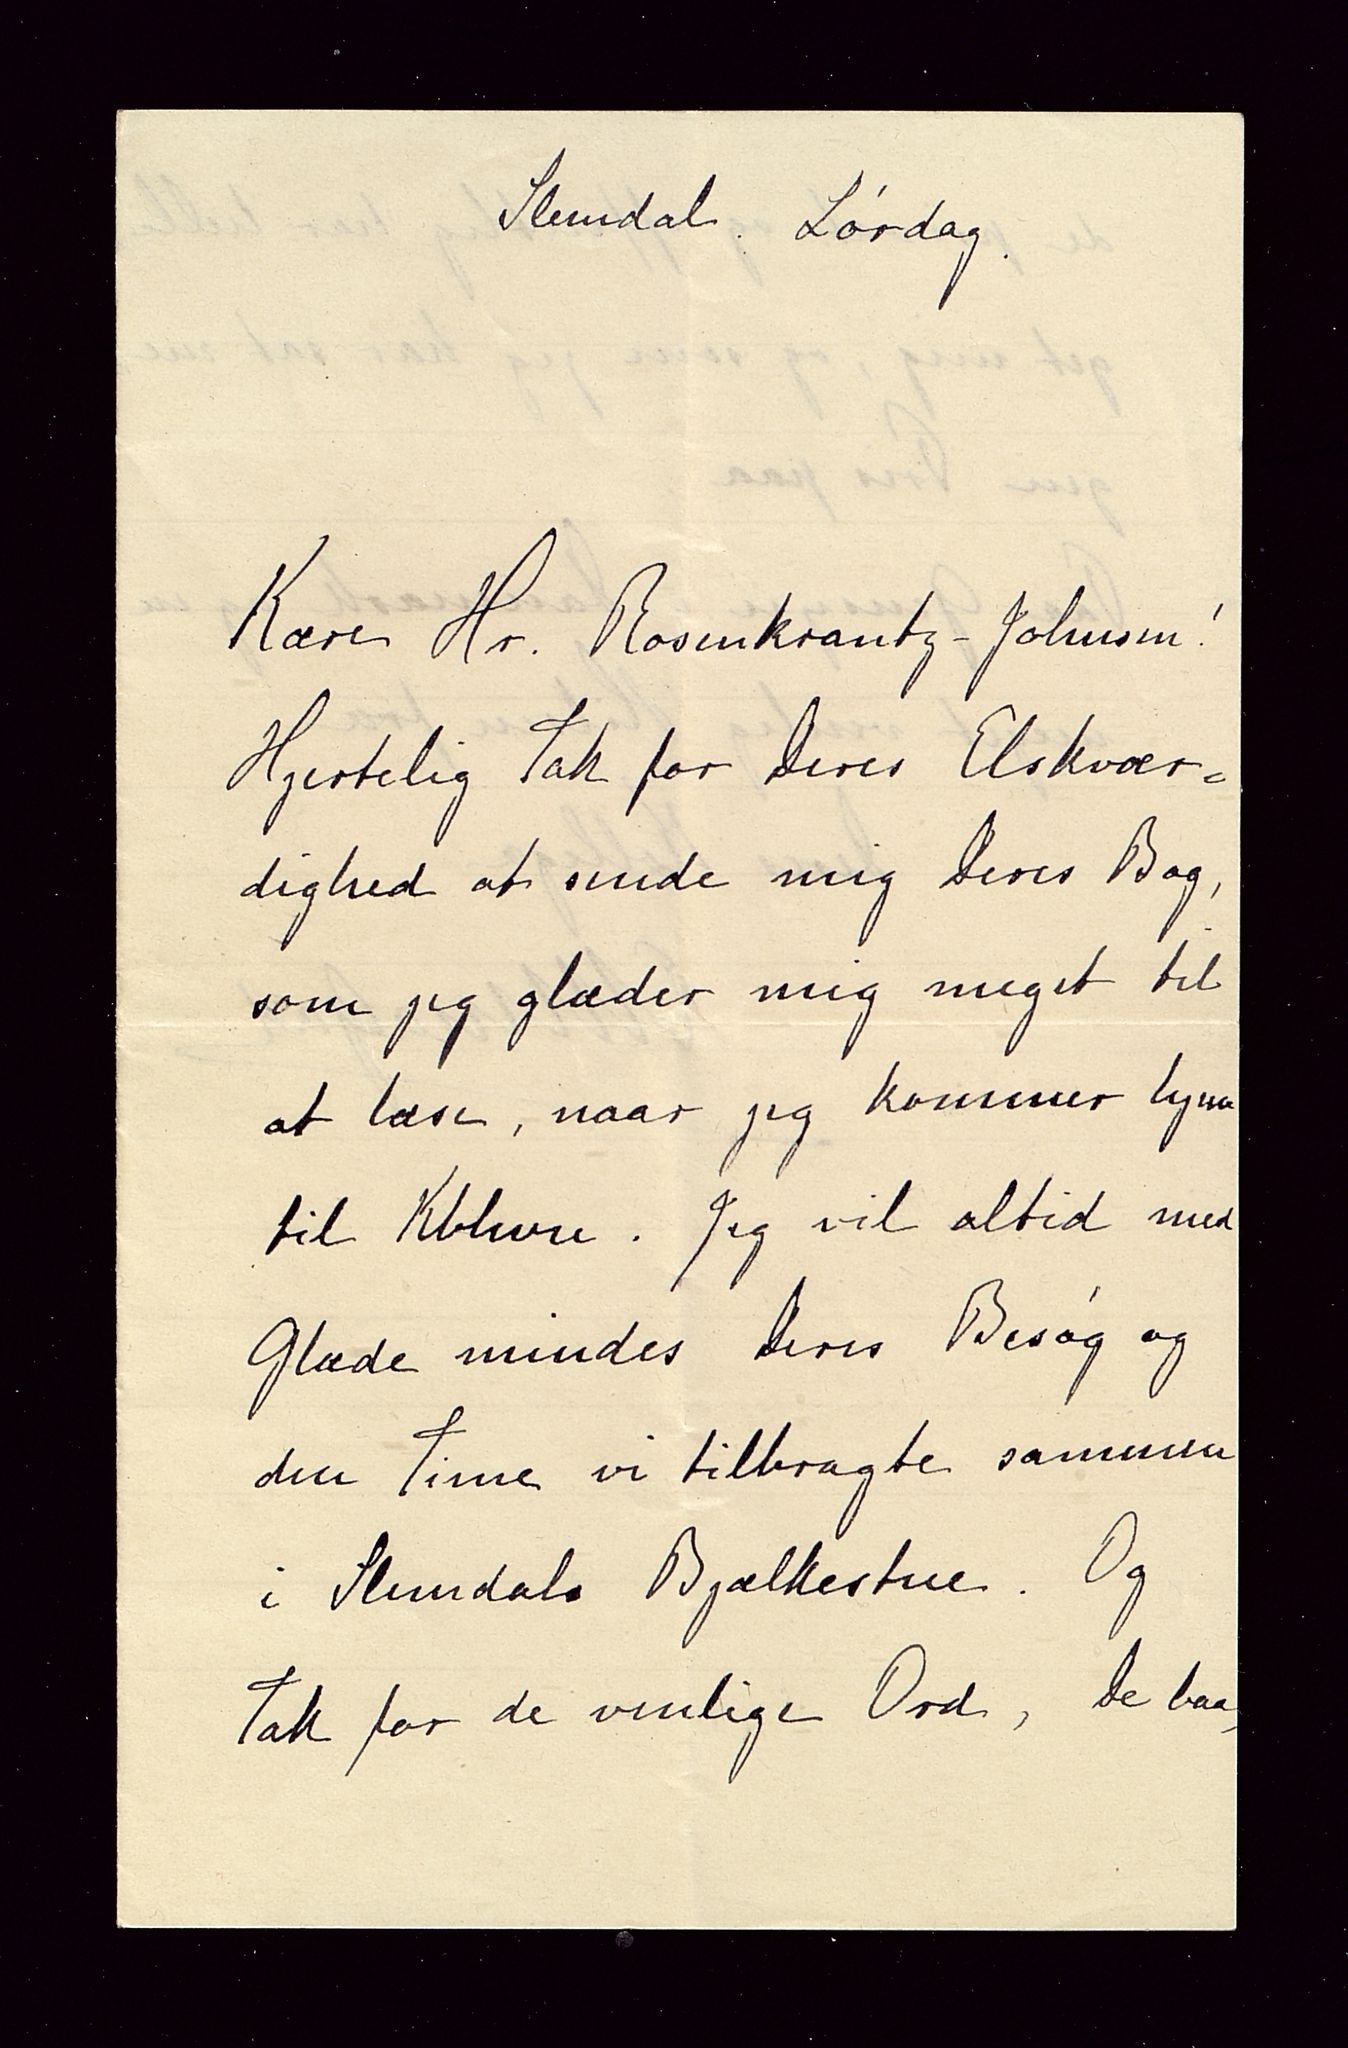 Slemdal. Lørdag.
Kære Hr. Rosenkrantz-Johnsen!
Hjertelig Tak for Deres Elskvær-
dighed at sende mig Deres Bog,
som jeg glæder mig meget til
at læse, naar jeg kommer hjem
til Kbhvn. Jeg vil altid med
Glæde mindes Deres Besøg og
den Time vi tilbragte sammen
i Slemdals Bjælkestue. Og
Tak for de venlige Ord, De baa-